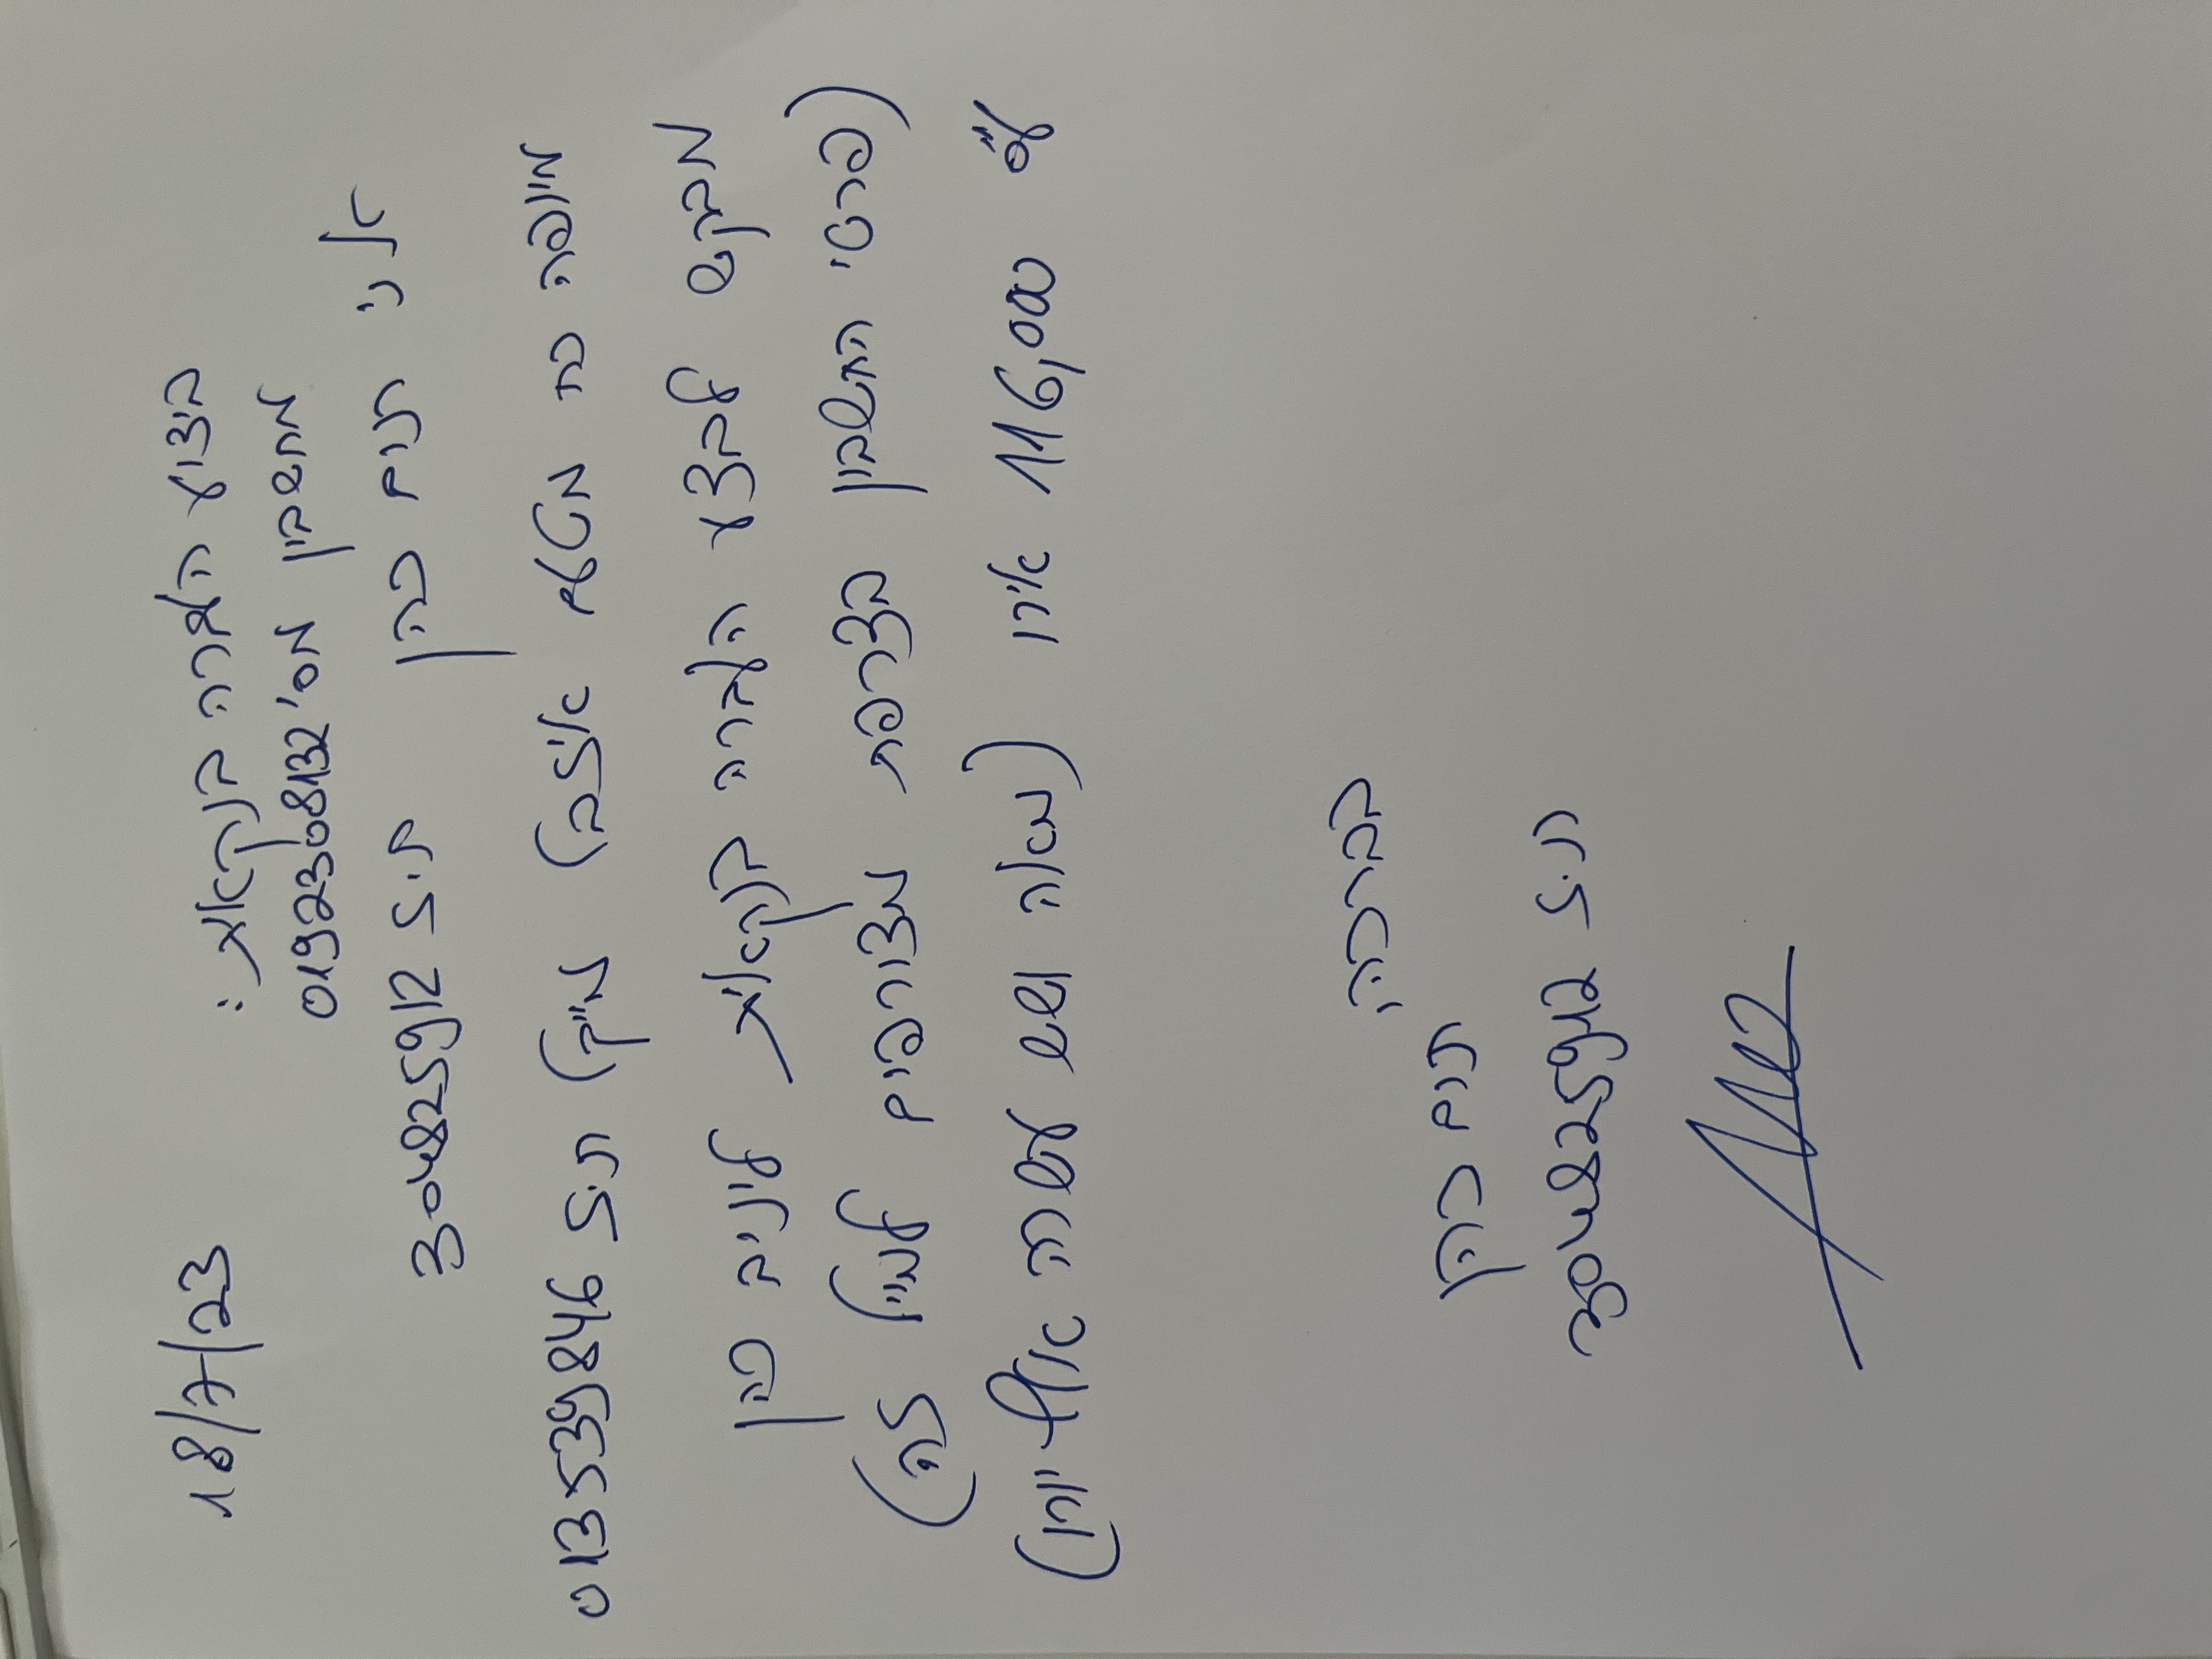 18/7/23
ביצוע העברה בנקאית:
מחשבון מס' 0192308132
אני תום כהן ת.ז 304825912
מיופה כח מטעם איזבל מייקל ת.ז 013539846
מבקש לבצע העברה בנקאית ליניב כהן
(פרטי החשבון בצרפת מצורפים למייל זה)
ע"ס 116,000 אירו (מאה ושש עשרה אלף יורו)
בברכה,
תום כהן
ת.ז 304825912